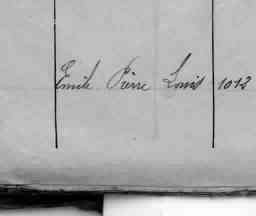 Emile Pierre Louis 1012